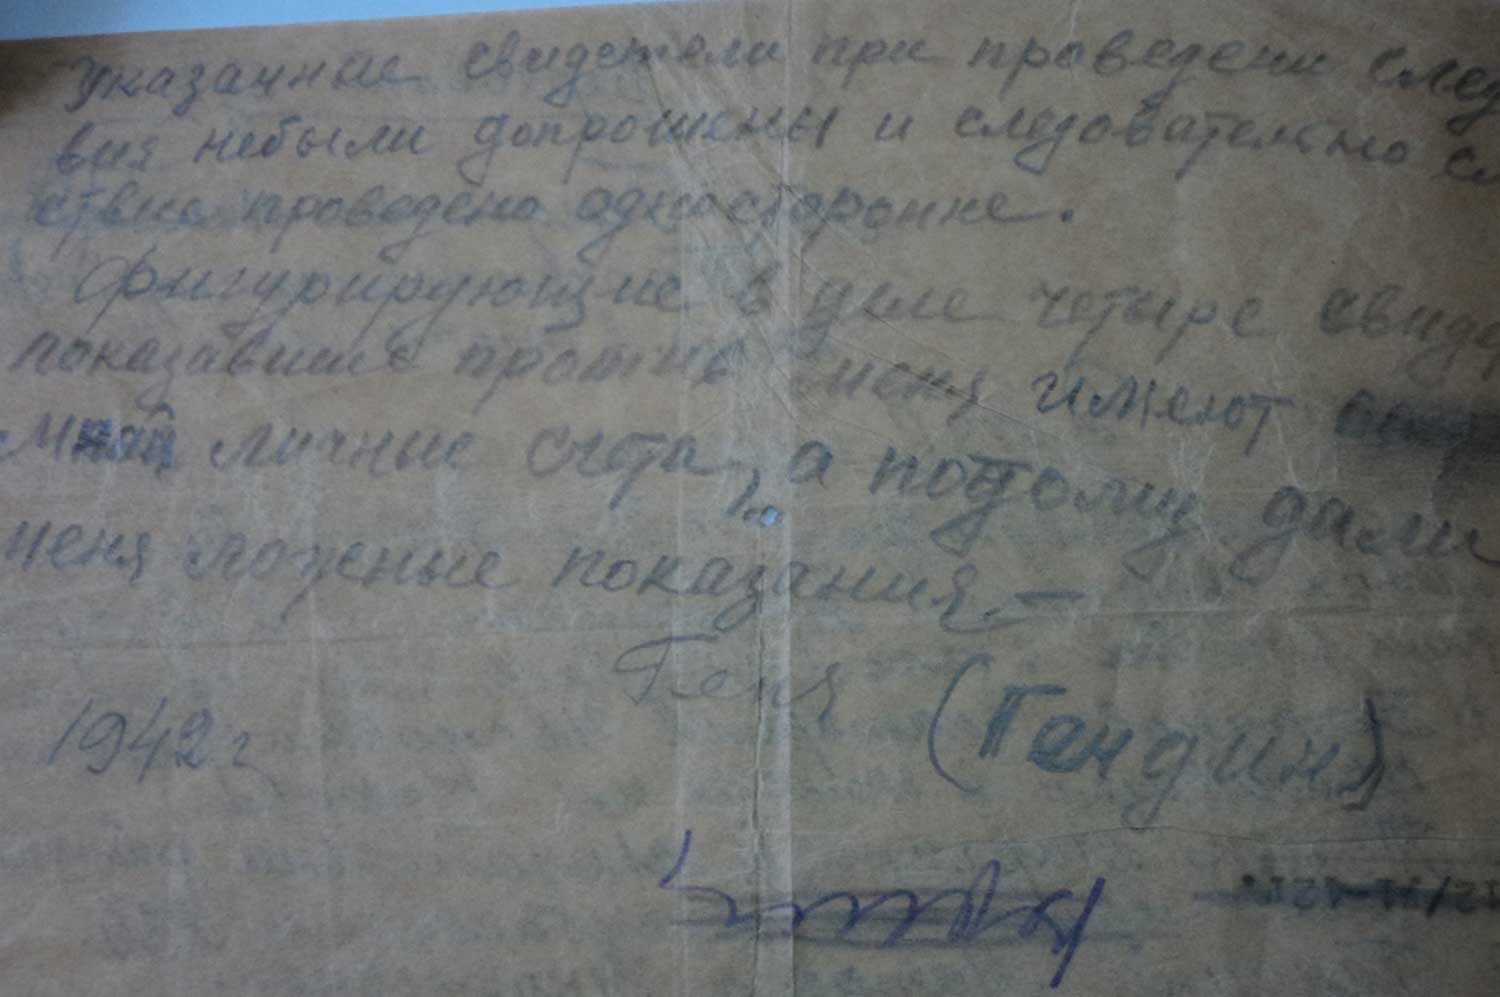 Указанные свидетели при проведени след
вия небыли допрошены и следовательно сл
ствие проведено односторонне.
Фигурирующие в деле четыре свиде
показавшие против меня имеют
мной личные счета, а поэтому дали
меня ложные показания. —
Генд (Гендин)
1942 г